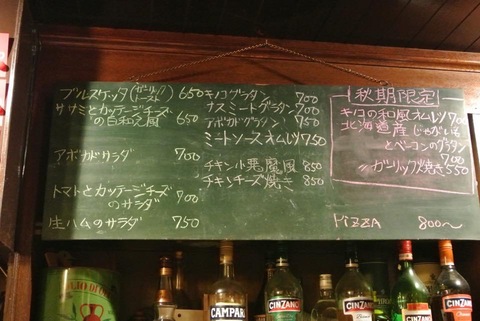 ブルスケッタ(ガーリックトースト) 650
ササミとカッテージチーズ
の白和え風 650
アボカドサラダ 700
トマトとカッテージチーズ
のサラダ 700
生ハムのサラダ 750
キノコグラタン 700
ナスミートグラタン 700
アボカドグラタン 750
ミートソースオムレツ 750
チキン小悪魔風 850
チキンチーズ焼き 850
秋期限定
キノコの和風オムレツ 700
北海道産じゃがいも
とベーコンのグラタン
700
〃 ガーリック焼き 550
PIZZA 800〜
CAMPARI
CINZANO
CINZANO
CINZANO
CINZANO